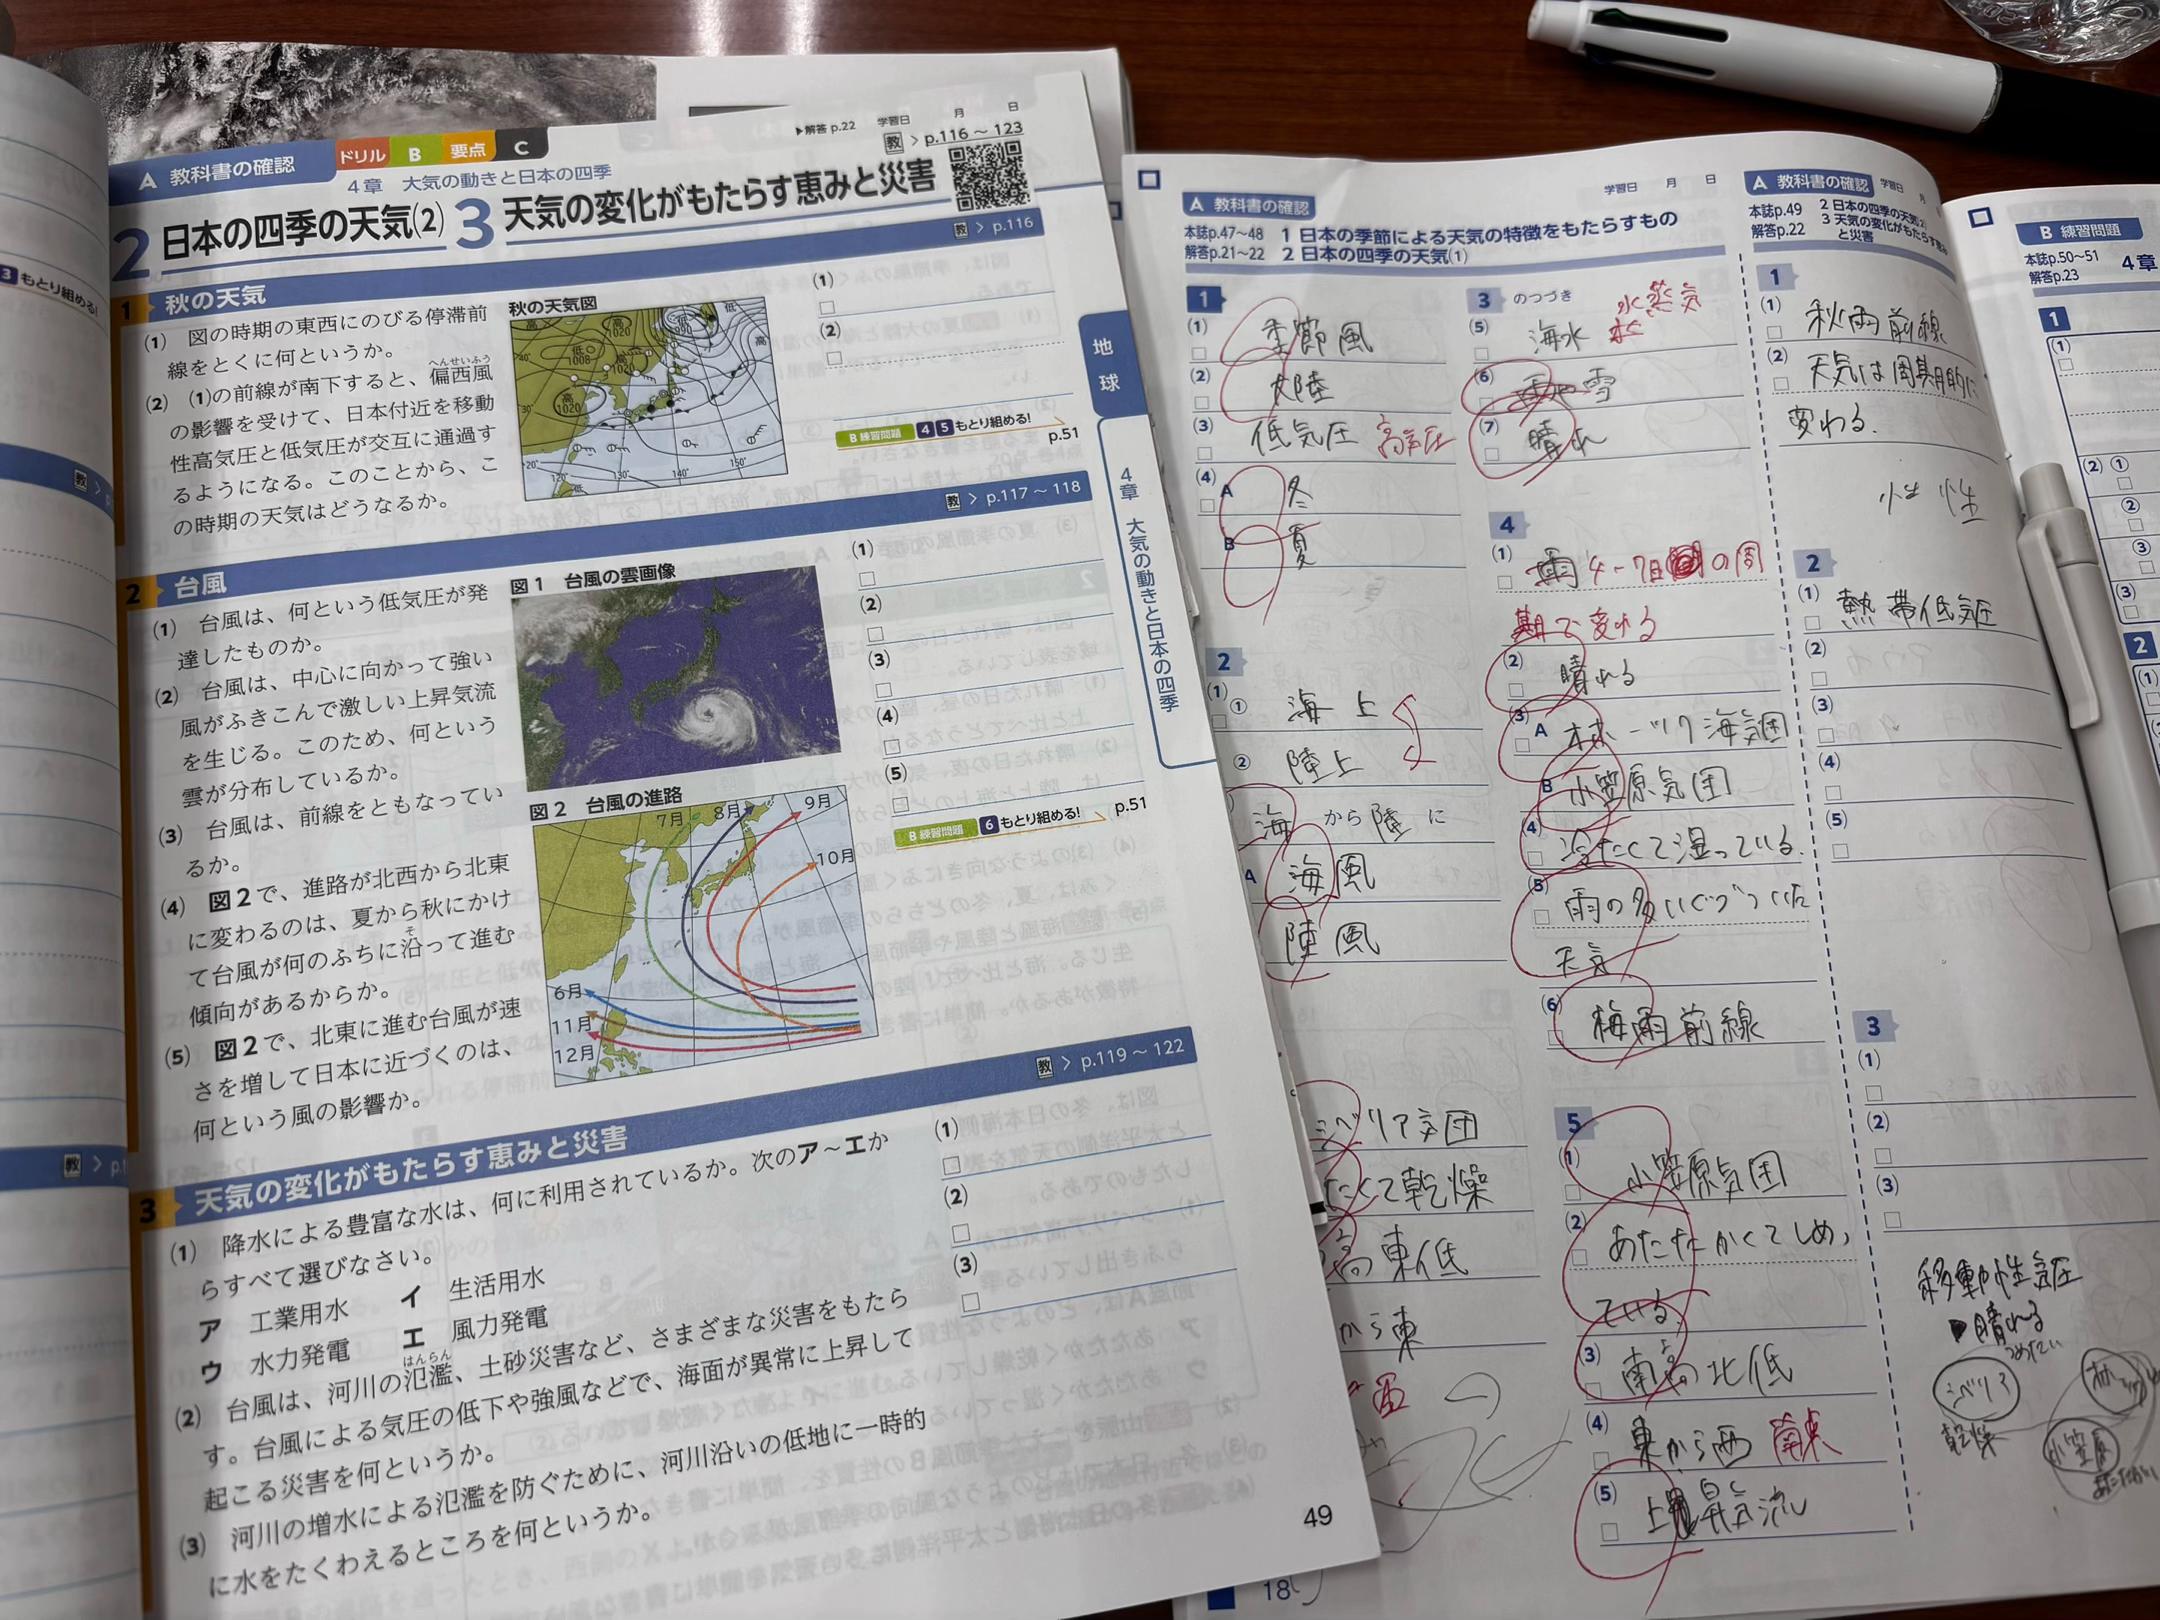 ▶解答 p.22
学習日 月 日
教 > p.116～123
A 教科書の確認
ドリル B 要点 C
4章 大気の動きと日本の四季
2 日本の四季の天気(2) 3 天気の変化がもたらす恵みと災害
教 > p.116
1 秋の天気
(1) 図の時期の東西にのびる停滞前
線をとくに何というか。
(2) (1)の前線が南下すると、偏西風
へんせいふう
の影響を受けて、日本付近を移動
性高気圧と低気圧が交互に通過す
るようになる。このことから、こ
の時期の天気はどうなるか。
秋の天気図
高
1020
低
1008
高
1020
高
1020
低
990
高
低
40°
30°
20°
120°
130°
140°
150°
(1)
(2)
B 練習問題 4 5 もとり組める!
p.51
教 > p.117～118
2 台風
(1) 台風は、何という低気圧が発
達したものか。
(2) 台風は、中心に向かって強い
風がふきこんで激しい上昇気流
を生じる。このため、何という
雲が分布しているか。
(3) 台風は、前線をともなってい
るか。
(4) 図2で、進路が北西から北東
に変わるのは、夏から秋にかけ
て台風が何のふちに沿って進む
そ
傾向があるからか。
(5) 図2で、北東に進む台風が速
さを増して日本に近づくのは、
何という風の影響か。
図1 台風の雲画像
図2 台風の進路
7月
8月
9月
10月
6月
11月
12月
(1)
(2)
(3)
(4)
(5)
B 練習問題 6 もとり組める!
p.51
教 > p.119～122
3 天気の変化がもたらす恵みと災害
(1) 降水による豊富な水は、何に利用されているか。次のア～エか
らすべて選びなさい。
ア 工業用水 イ 生活用水
ウ 水力発電 エ 風力発電
(2) 台風は、河川の氾濫、土砂災害など、さまざまな災害をもたら
はんらん
す。台風による気圧の低下や強風などで、海面が異常に上昇して
起こる災害を何というか。
(3) 河川の増水による氾濫を防ぐために、河川沿いの低地に一時的
に水をたくわえるところを何というか。
(1)
(2)
(3)
49
地球
4章 大気の動きと日本の四季
3 もとり組める!
教
教 > p.1
A 教科書の確認
学習日 月 日
本誌p.47～48 1 日本の季節による天気の特徴をもたらすもの
解答p.21～22 2 日本の四季の天気(1)
1
(1) 季節風
(2) 大陸
(3) 低気圧 高気圧
(4) A 冬
B 夏
2
(1) ① 海上
② 陸上
海から陸に
A 海風
陸風
シベリア気団
たくて乾燥
高東低
から東
3 のつづき
(5) 海水 水蒸気
(6) 雪
(7) 晴れ
4
(1) 雨 4-7日の周
期で変わる
(2) 晴れる
(3) A オホーツク海気団
B 小笠原気団
(4) 冷たくて湿っている.
(5) 雨の多いぐづついた
天気
(6) 梅雨前線
5
(1) 小笠原気団
(2) あたたかくてしめっ
ている
(3) 南高北低
(4) 東から西 南東
(5) 上昇気流
18
A 教科書の確認
学習日 月
本誌p.49 2 日本の四季の天気(2)
解答p.22 3 天気の変化がもたらす恵み
と災害
1
(1) 秋雨前線
(2) 天気は周期的に
変わる.
性 性
2
(1) 熱帯低気圧
(2)
(3)
(4)
(5)
3
(1)
(2)
(3)
移動性気圧
晴れる
つめたい
シベリア
乾燥
小笠原
B 練習問題
本誌p.50～51
解答p.23
4章
1
(1)
(2) ①
②
③
(3)
2
(1)